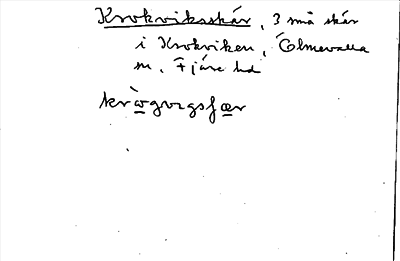 Krokviksskär, 3 små skär
i Krokviken, Ölmevalla
sn, Fjäre hd
krò̲gvıgsʃæ̲r